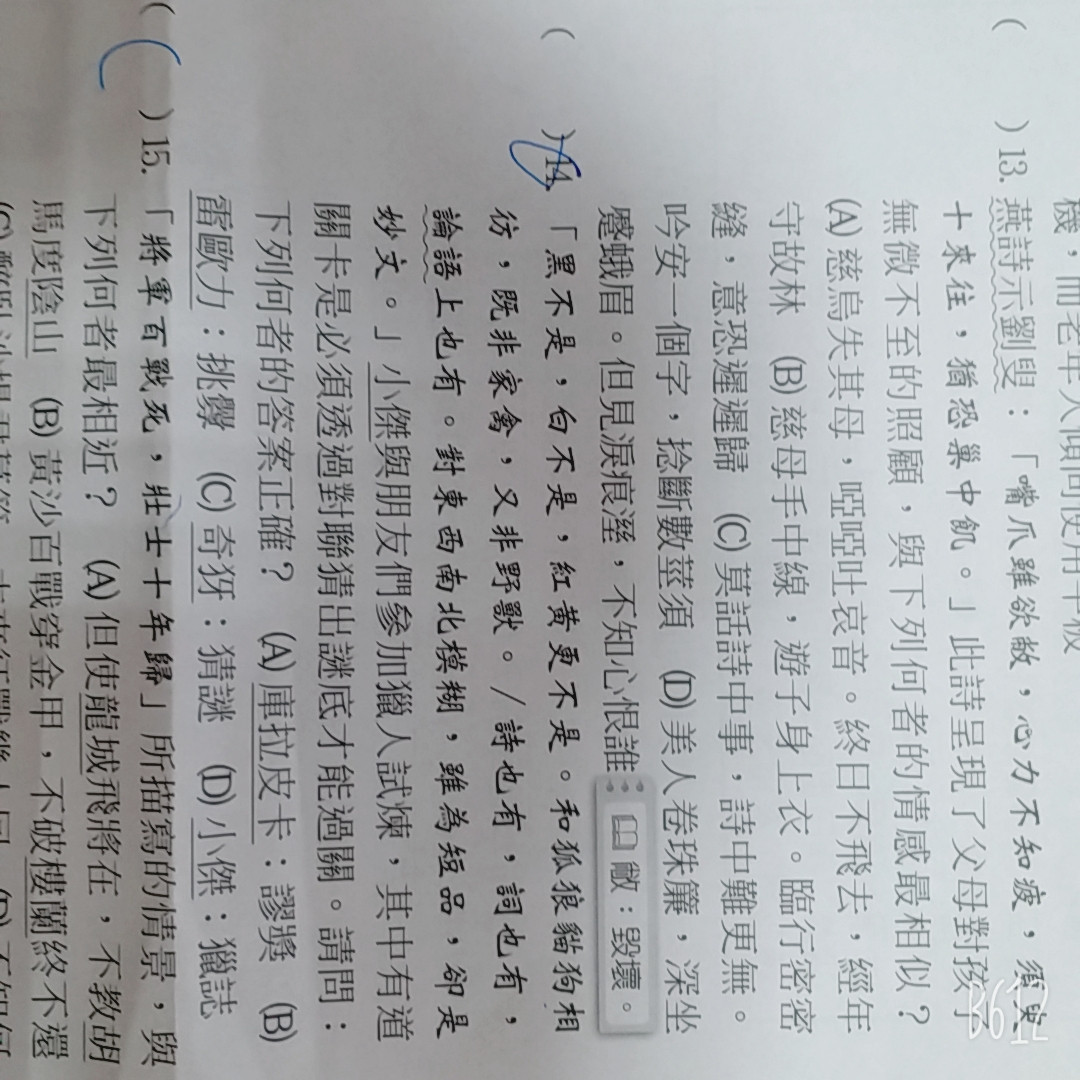 機，而老年人傾向使用平板
( ) 13. 燕詩示劉叟：「嘴爪雖欲敝，心力不知疲，須臾
十來往，猶恐巢中飢。」此詩呈現了父母對孩子
無微不至的照顧，與下列何者的情感最相似？
(A) 慈烏失其母，啞啞吐哀音。終日不飛去，經年
守故林 (B) 慈母手中線，遊子身上衣。臨行密密
縫，意恐遲遲歸 (C) 莫話詩中事，詩中難更無。
吟安一個字，捻斷數莖須 (D) 美人卷珠簾，深坐
蹙蛾眉。但見淚痕溼，不知心恨誰
敝：毀壞。
( ) 14. 「黑不是，白不是，紅黃更不是。和狐狼貓狗相
彷，既非家禽，又非野獸。／詩也有，詞也有，
論語上也有。對東西南北模糊，雖為短品，卻是
妙文。」小傑與朋友們參加獵人試煉，其中有道
關卡是必須透過對聯猜出謎底才能過關。請問：
下列何者的答案正確？ (A) 庫拉皮卡：謬獎 (B)
雷歐力：挑釁 (C) 奇犽：猜謎 (D) 小傑：獵誌
( ) 15. 「將軍百戰死，壯士十年歸」所描寫的情景，與
下列何者最相近？ (A) 但使龍城飛將在，不教胡
馬度陰山 (B) 黃沙百戰穿金甲，不破樓蘭終不還
(C)
B612